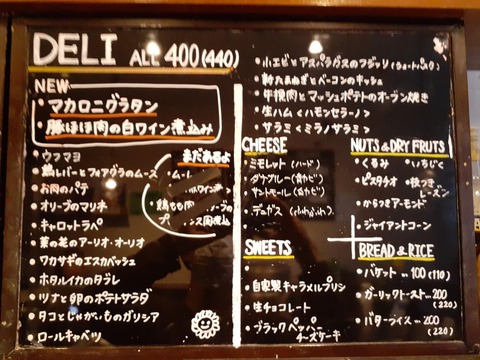 DELI ALL 400(440)
NEW
・マカロニグラタン
・豚ほほ肉の白ワイン煮込み
・ウフマヨ
・鶏レバーとフォアグラのムース
・お肉のパテ
・オリーブのマリネ
・キャロットラペ
・菜の花のアーリオ・オーリオ
・ワカサギのエスカベッシュ
・ホタルイカのタブレ
・ツナと卵のポテトサラダ
・タコとじゃがいものガリシア
・ロールキャベツ
まだあるよ
・鶏もも肉
・小エビとアスパラガスのフジッリ(ショートパスタ)
・新たまねぎとベーコンのキッシュ
・牛挽肉とマッシュポテトのオーブン焼き
・生ハム<ハモンセラーノ>
・サラミ<ミラノサラミ>
CHEESE
・ミモレット(ハード)
・ダナブルー(青カビ)
・サントモール(白カビ)
・デュカス
SWEETS
・自家製キャラメルプリン
・生チョコレート
・ブラックペッパーチーズケーキ
NUTS & DRY FRUTS
・くるみ ・いちじく
・ピスタチオ ・枝つきレーズン
・からつきアーモンド
・ジャイアントコーン
BREAD & RICE
・バゲット …100(110)
・ガーリックトースト…200(220)
・バターライス…200(220)